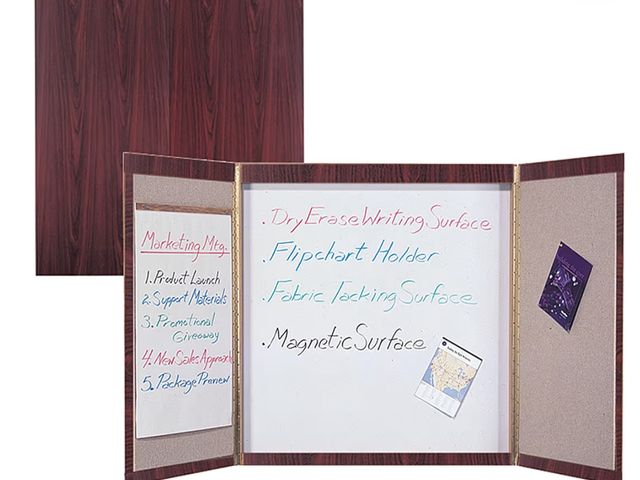 Marketing Mtg.
1. Product Launch
2. Support Materials
3. Promotional
Giveaway
4. New Sales Approach
5. Package Preview
. Dry Erase Writing Surface
. Flipchart Holder
. Fabric Tacking Surface
. Magnetic Surface